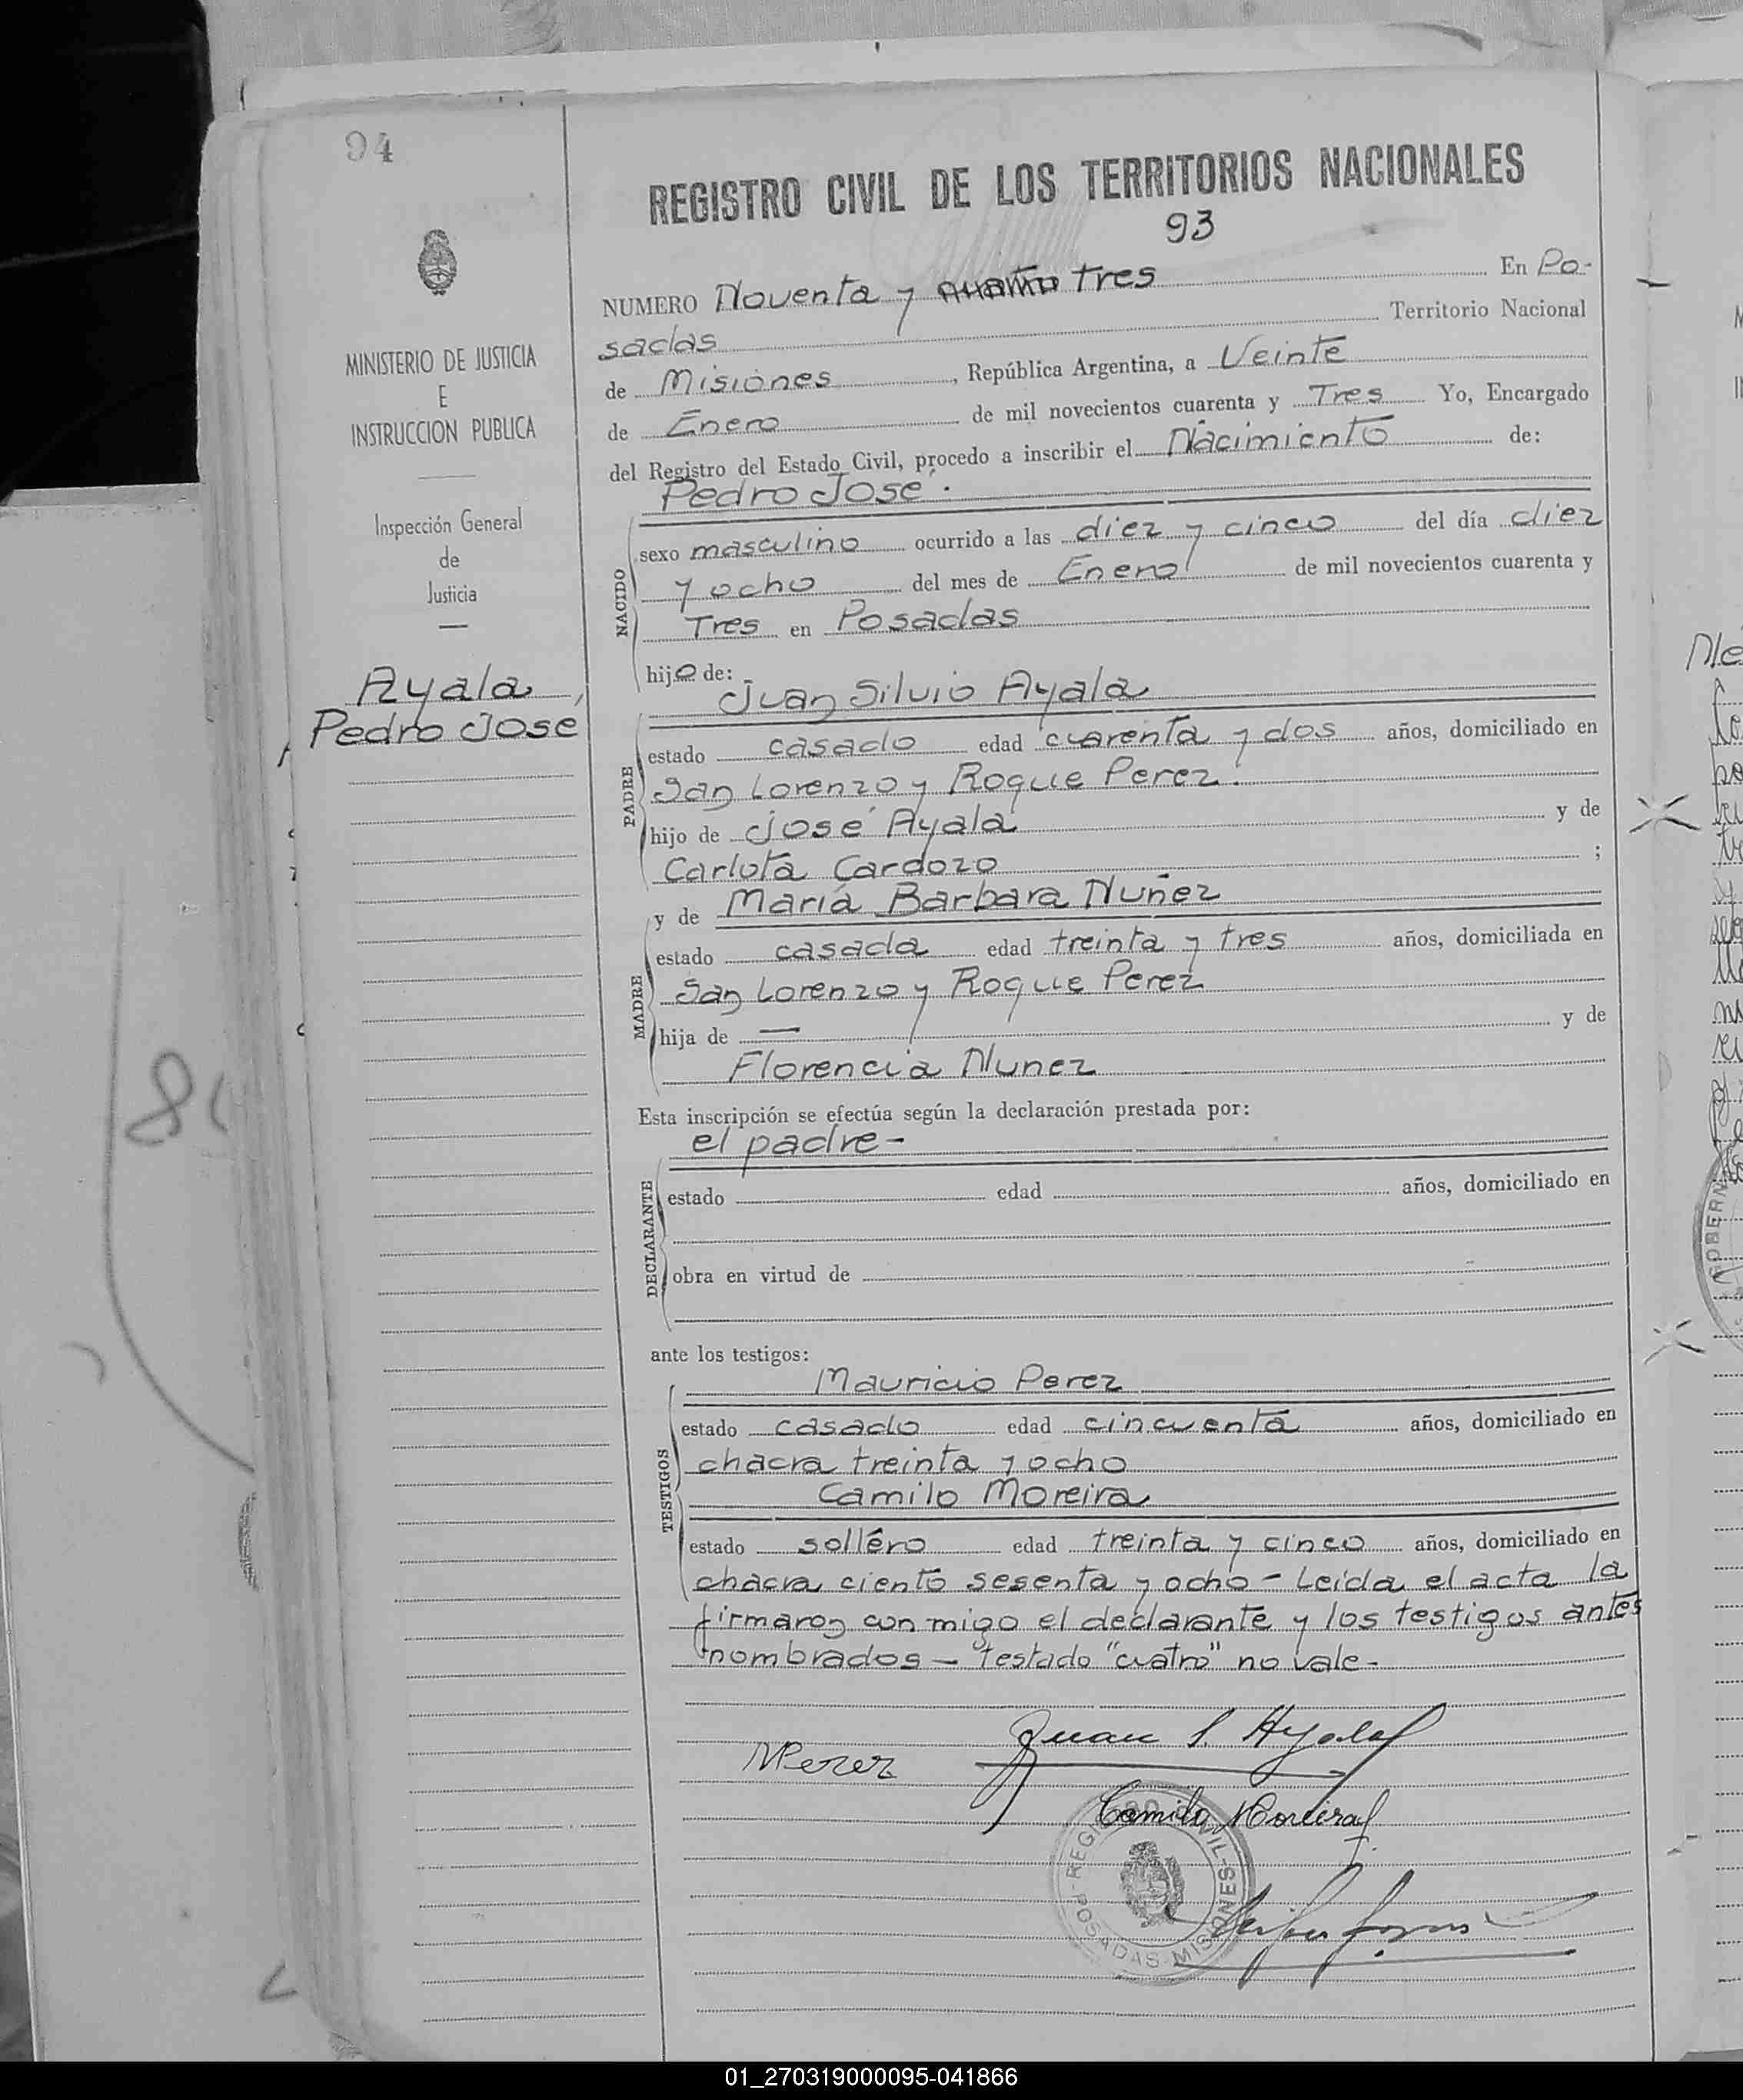 94
REGISTRO CIVIL DE LOS TERRITORIOS NACIONALES
93
NUMERO Noventa y cuatro tres En Po-
sadas Territorio Nacional
de Misiones, República Argentina, a Veinte
de Enero de mil novecientos cuarenta y Tres Yo, Encargado
del Registro del Estado Civil, procedo a inscribir el Nacimiento de:
Pedro José.
MINISTERIO DE JUSTICIA
E
INSTRUCCION PUBLICA
Inspección General
de
Justicia
Ayala,
Pedro Jose
NACIDO
sexo masculino ocurrido a las diez y cinco del día diez
y ocho del mes de Enero de mil novecientos cuarenta y
Tres en Posadas
hijo de:
Juan Silvio Ayala
PADRE
estado casado edad cuarenta y dos años, domiciliado en
San Lorenzo y Roque Perez.
hijo de José Ayala y de
Carlota Cardozo ;
y de María Barbara Nuñez
MADRE
estado casada edad treinta y tres años, domiciliada en
San Lorenzo y Roque Perez
hija de — y de
Florencia Nunez
Esta inscripción se efectúa según la declaración prestada por:
el padre -
DECLARANTE
estado edad años, domiciliado en
obra en virtud de
ante los testigos:
Mauricio Perez
TESTIGOS
estado casado edad cincuenta años, domiciliado en
chacra treinta y ocho
Camilo Moreira
estado soltéro edad treinta y cinco años, domiciliado en
chacra ciento sesenta y ocho - Leida el acta la
firmaron con migo el declarante y los testigos antes
nombrados - testado "cuatro" no vale -
Juan S. Ayala
MPerez
Camilo Moreira
REGISTRO CIVIL
POSADAS-MISIONES
01_270319000095-041866